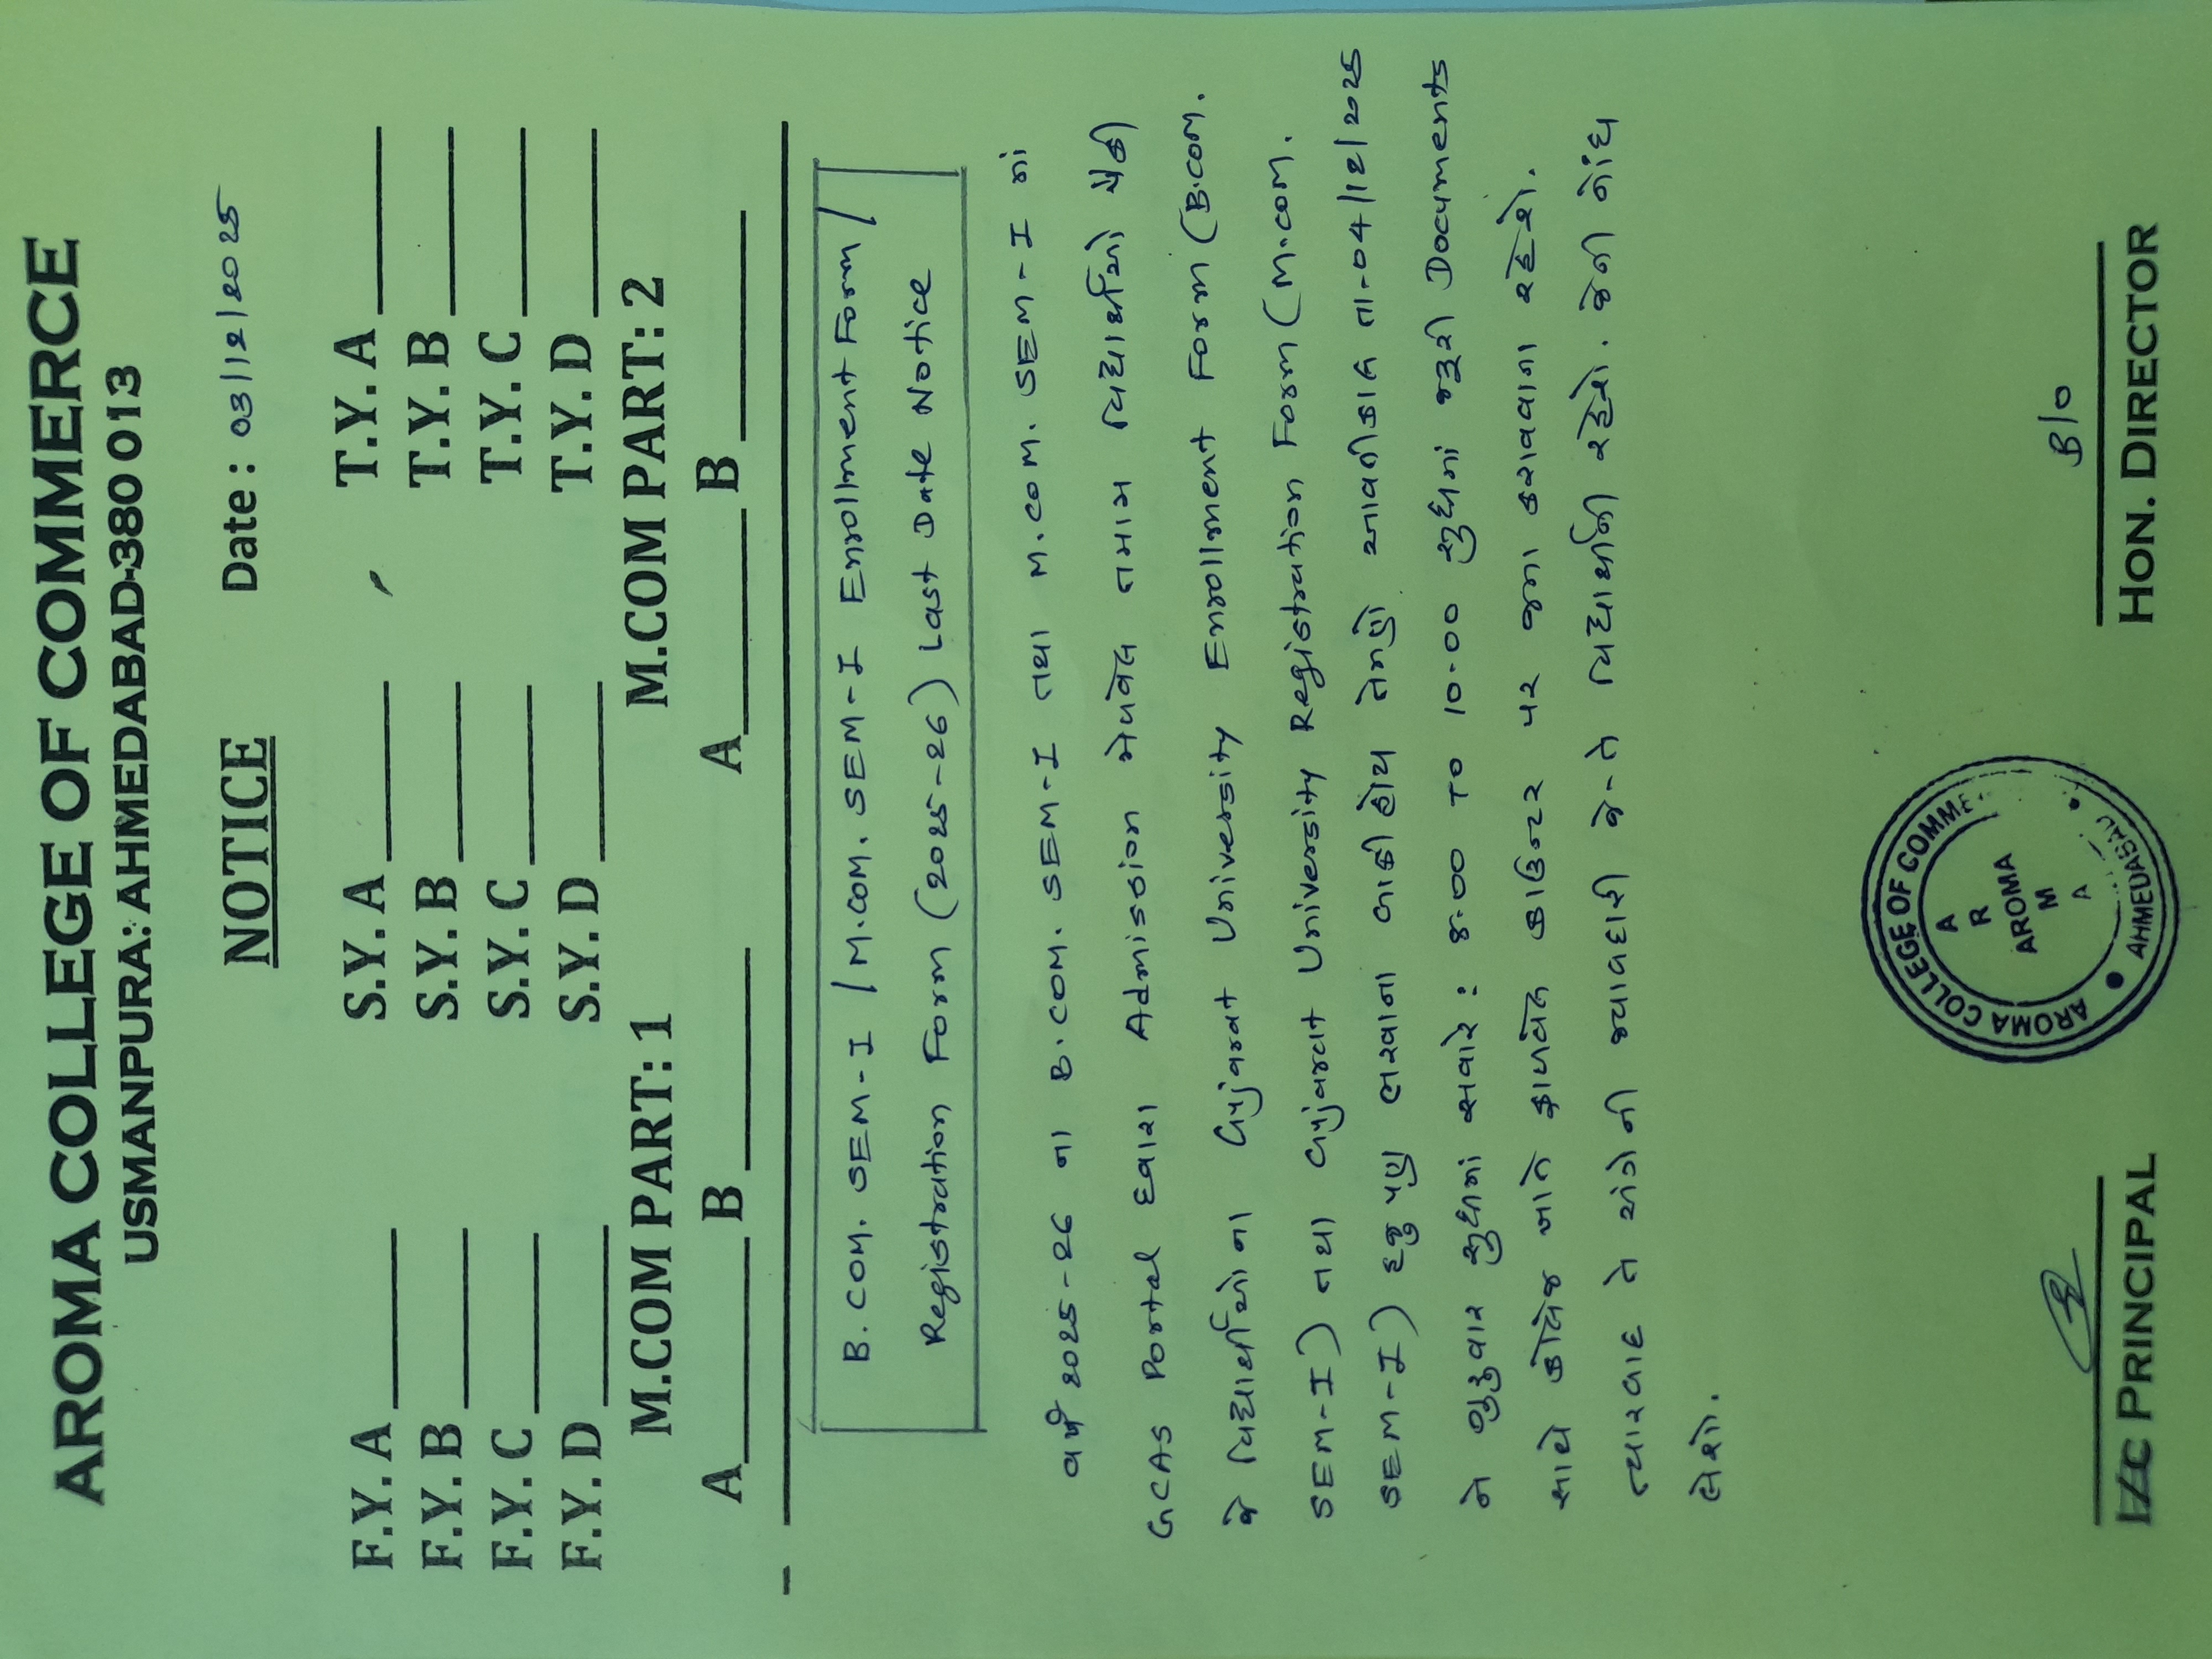 AROMA COLLEGE OF COMMERCE
USMANPURA: AHMEDABAD-380 013
NOTICE Date : 03/12/2025
F.Y. A ______ S.Y. A ______ T.Y. A ______
F.Y. B ______ S.Y. B ______ T.Y. B ______
F.Y. C ______ S.Y. C ______ T.Y. C ______
F.Y. D ______ S.Y. D ______ T.Y. D ______
M.COM PART: 1 M.COM PART: 2
A ______ B ______ A ______ B ______
B.COM. SEM-I / M.COM. SEM-I Enrollment Form /
Registration Form (2025-26) Last Date Notice
વર્ષ 2025-26 ના B.COM. SEM-I તથા M.COM. SEM-I માં
GCAS Portal દ્વારા Admission મેળવેલ તમામ વિદ્યાર્થીઓ પૈકી
જે વિદ્યાર્થીઓના Gujarat University Enrollment Form (B.COM.
SEM-I) તથા Gujarat University Registration Form (M.COM.
SEM-I) હજુ પણ ભરવાના બાકી હોય તેમણે આવતીકાલ તા-04/12/2025
ને ગુરુવાર સુધીમાં સવારે : 8.00 TO 10.00 સુધીમાં જરૂરી Documents
સાથે કોલેજ ખાતે ફાળવેલ કાઉન્ટર પર જમા કરાવવાના રહેશે.
ત્યારબાદ તે અંગે ની જવાબદારી જે-તે વિદ્યાર્થીની રહેશે. જેની નોંધ
લેશો.
AROMA COLLEGE OF COMME
A
R
AROMA
M
A
AHMEDABAD
B/O
I/C PRINCIPAL HON. DIRECTOR